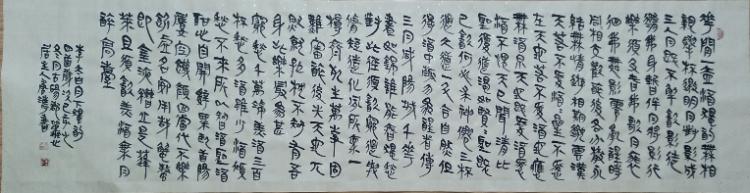 花間一壺酒獨酌無相
親舉杯邀明月對影成
三人月既不解飲影徒
隨我身暫伴月將影行
樂須及春我歌月徘
徊我舞影零亂醒時
同交歡醉後各分散永
結無情遊相期邈雲漢
天若不愛酒酒星不在
天地若不愛酒地應
無酒泉天地既愛酒愛
酒不愧天已聞清比
聖復道濁如賢賢聖既
已飲何必求神仙三杯
通大道一斗合自然但
得酒中趣勿為醒者傳
三月咸陽城千花
晝如錦誰能春獨愁
對此徑須飲窮通與修
短造化夙所稟一
樽齊死生萬事固
難審醉後失天地兀
然就孤枕不知有吾
身此樂最為甚
窮愁千萬端美酒三百
杯愁多酒雖少酒傾
愁不來所以知酒聖酒
酣心自開辭粟臥首陽
屢空飢顏回當代不樂
飲虛名安用哉蟹螯
即金液糟丘是蓬
萊且須飲美酒乘月
醉高臺
李太白月下獨酌
四首歲次己亥
冬月古陽郡